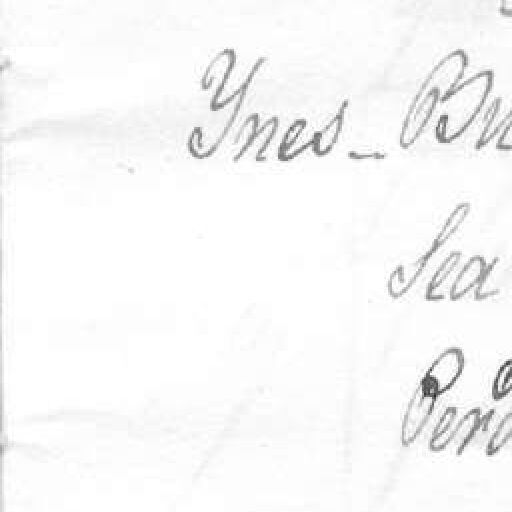 Ynes_ Bu
Sea
Pero